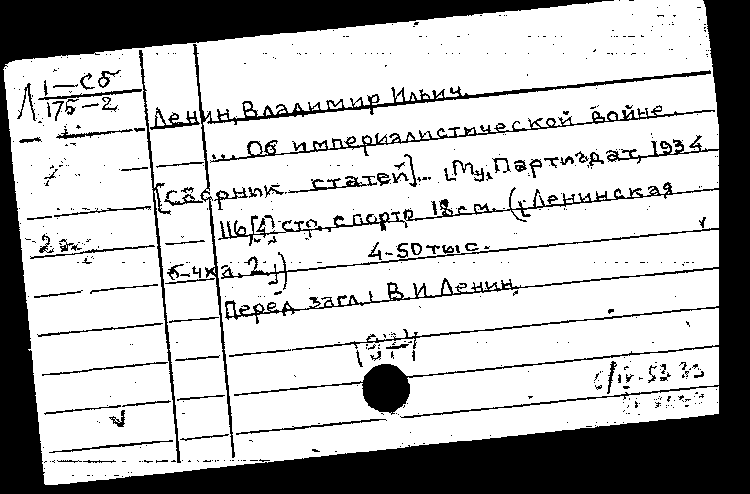 Л 1-Сб
175-2
Ленин, Владимир Ильич.
... Об империалистической войне.
[Сборник статей]... [М.], Партиздат, 1934.
116[4] стр., с портр. 18 см. ([Ленинская
б-чка. 2.])
4-50 тыс.
Перед загл.: В. И. Ленин.